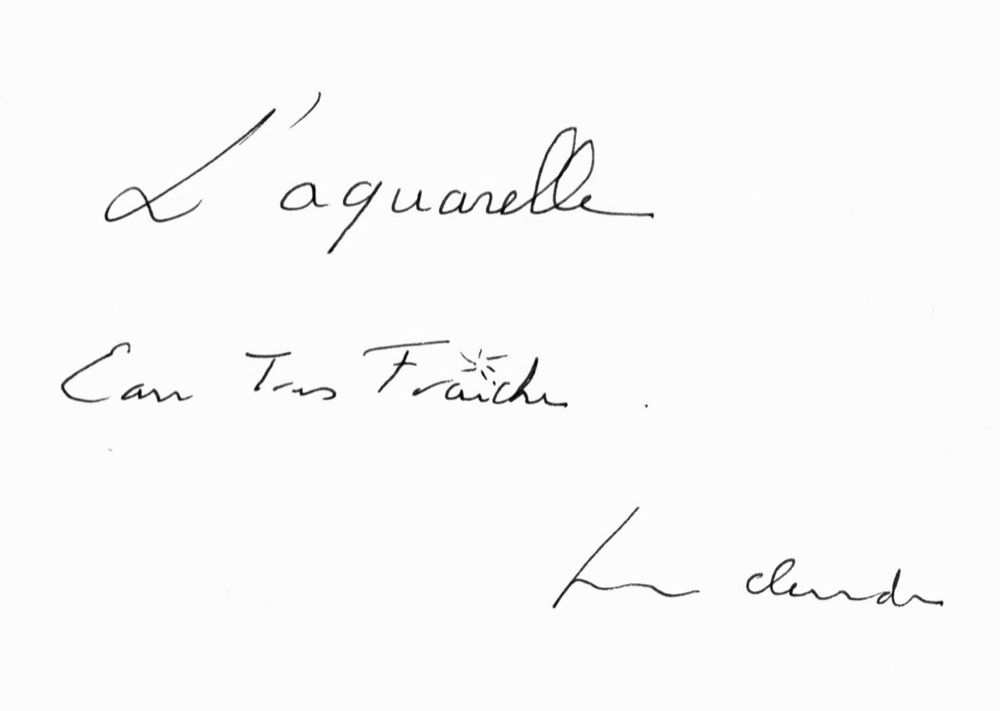 L'aquarelle
Eau Très Fraîche.
claude